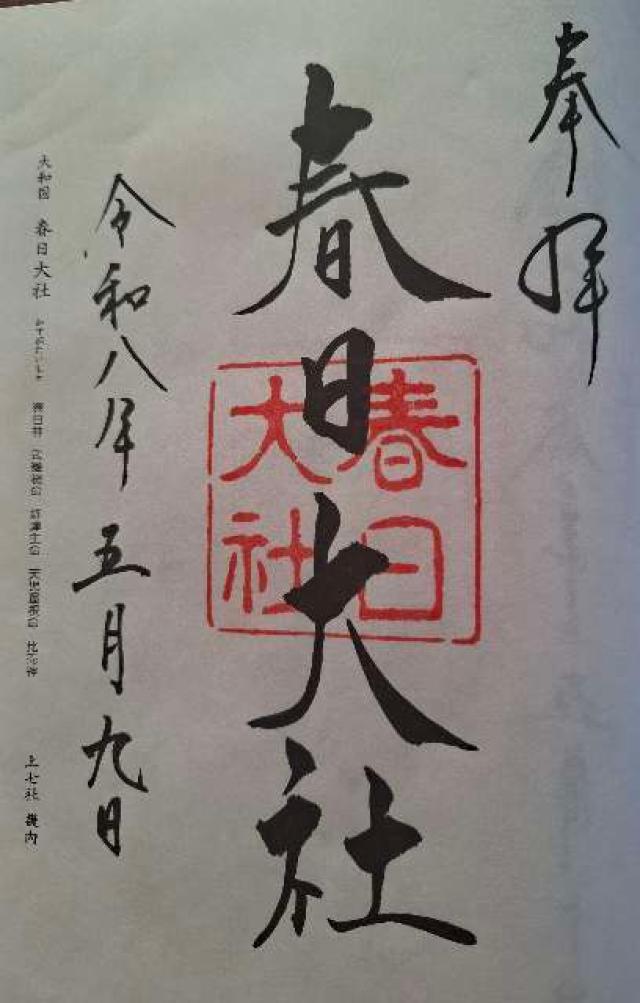 奉拝
春日大社
春日大社
令和八年五月九日
大和国 春日大社 かすがたいしゃ 春日神 武甕槌命 経津主命 天児屋根命 比売神 上七社 畿内